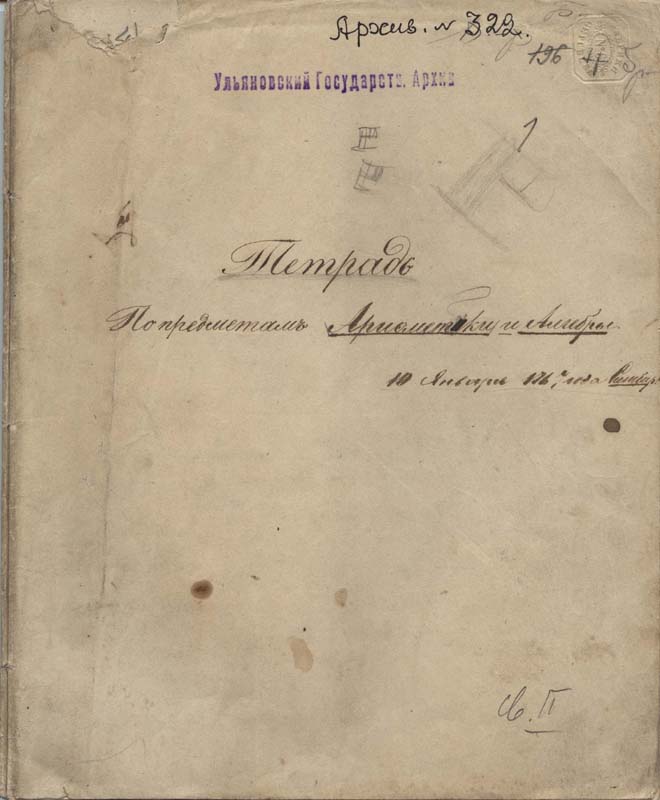 Архив. № 322.
196
Ульяновский Государств. Архив
Тетрадь
По предметамъ Ариѳметики и Алгебры.
10 Январь года
св. П